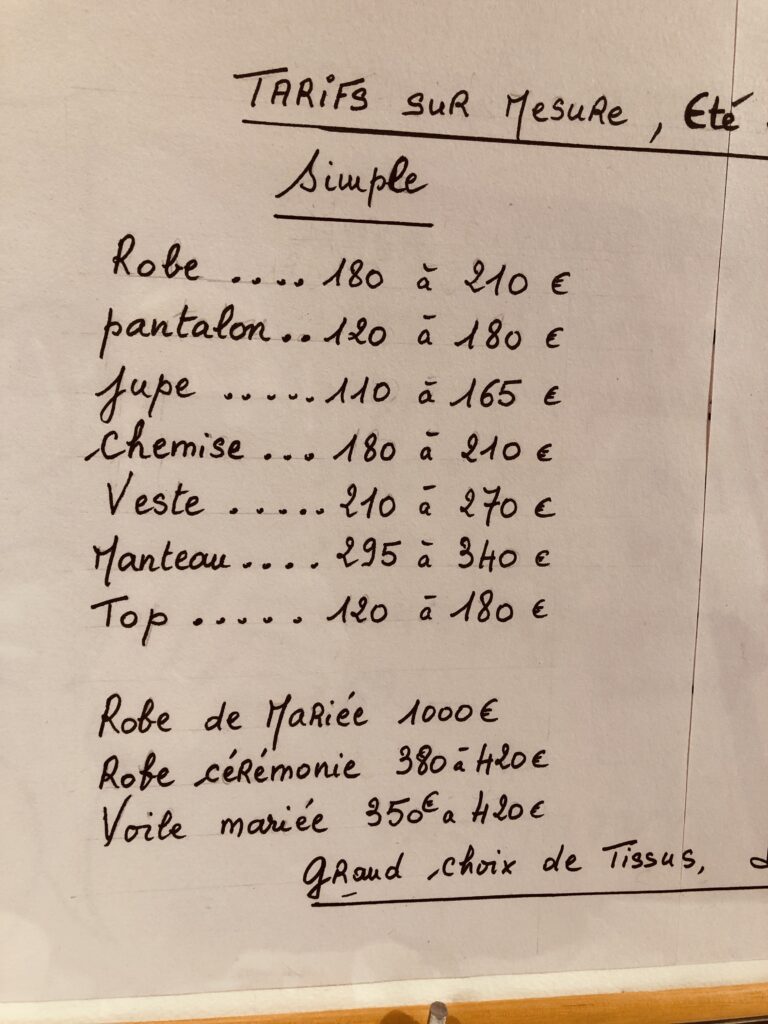 TARiFS SUR MESURE, Eté
Simple
Robe .... 180 à 210 €
pantalon .. 120 à 180 €
Jupe ..... 110 à 165 €
chemise ... 180 à 210 €
Veste ..... 210 à 270 €
Manteau .... 295 à 340 €
Top ..... 120 à 180 €
Robe de Mariée 1000 €
Robe cérémonie 380 à 420 €
Voile mariée 350€ a 420 €
GRand choix de Tissus,